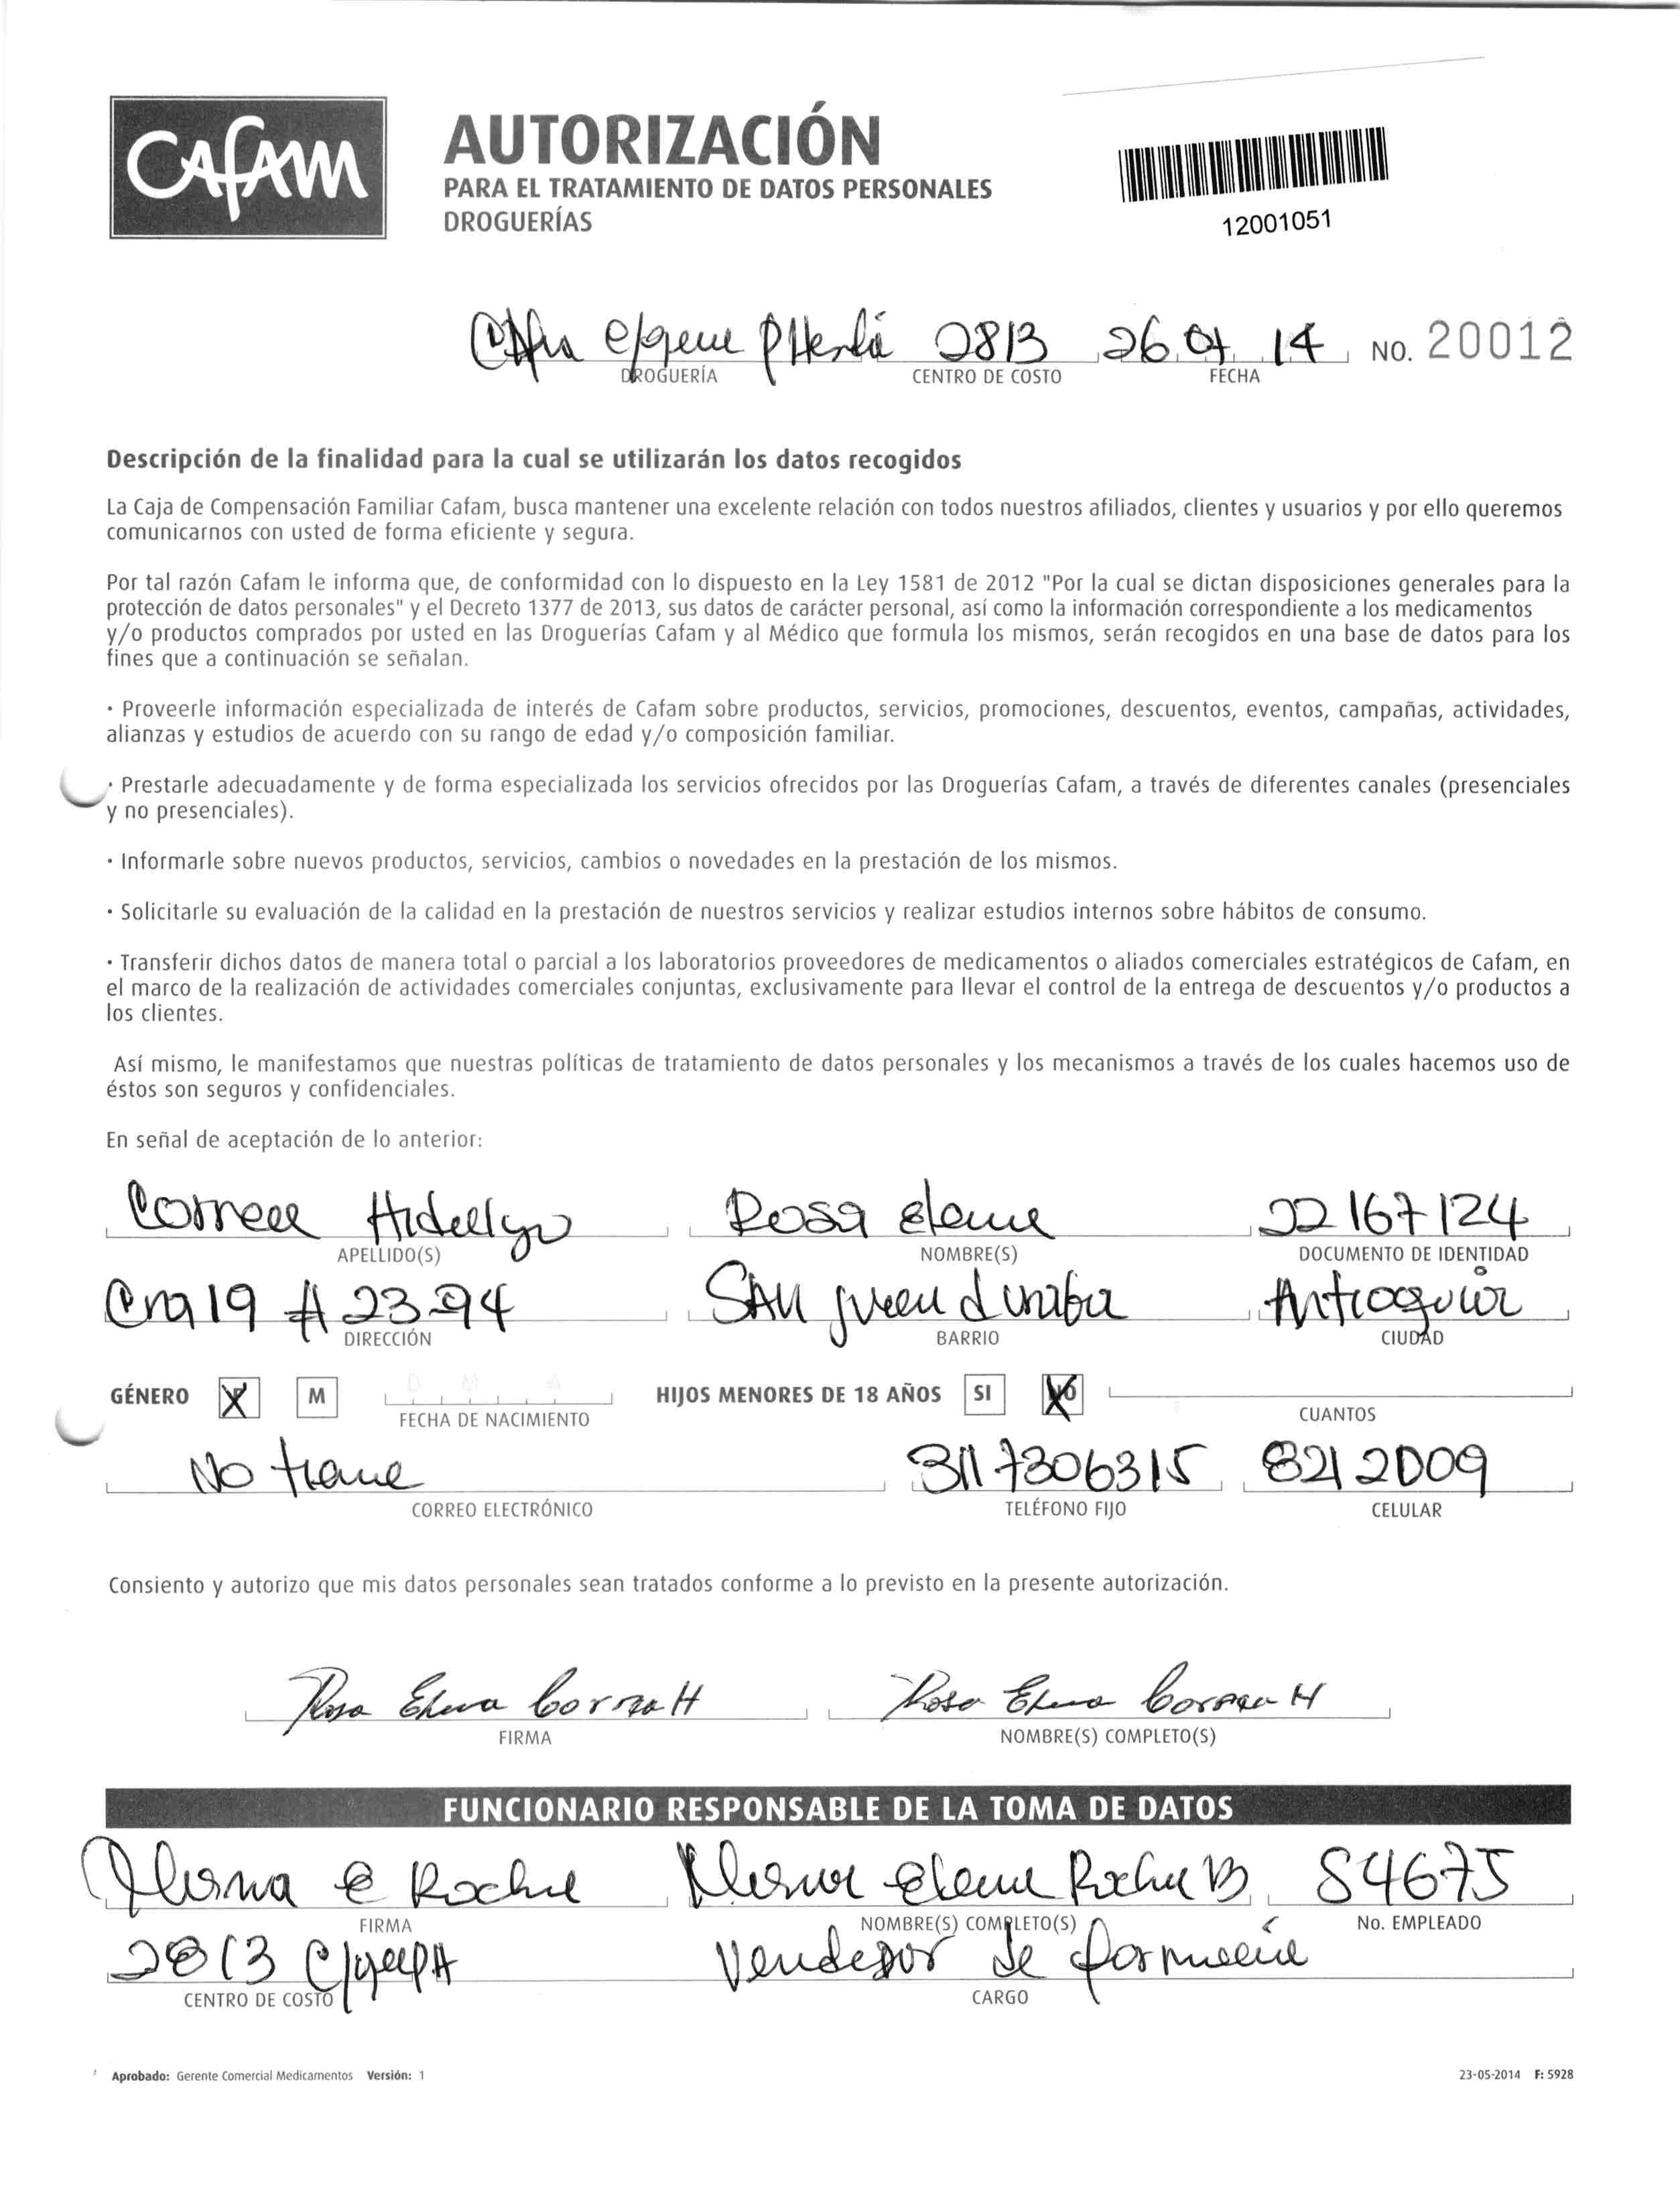 Cafam
AUTORIZACIÓN
PARA EL TRATAMIENTO DE DATOS PERSONALES
DROGUERÍAS
12001051
2813 26 07 14 NO. 20012
DROGUERÍA CENTRO DE COSTO FECHA
Descripción de la finalidad para la cual se utilizarán los datos recogidos
La Caja de Compensación Familiar Cafam, busca mantener una excelente relación con todos nuestros afiliados, clientes y usuarios y por ello queremos
comunicarnos con usted de forma eficiente y segura.
Por tal razón Cafam le informa que, de conformidad con lo dispuesto en la Ley 1581 de 2012 "Por la cual se dictan disposiciones generales para la
protección de datos personales" y el Decreto 1377 de 2013, sus datos de carácter personal, así como la información correspondiente a los medicamentos
y/o productos comprados por usted en las Droguerías Cafam y al Médico que formula los mismos, serán recogidos en una base de datos para los
fines que a continuación se señalan.
· Proveerle información especializada de interés de Cafam sobre productos, servicios, promociones, descuentos, eventos, campañas, actividades,
alianzas y estudios de acuerdo con su rango de edad y/o composición familiar.
· Prestarle adecuadamente y de forma especializada los servicios ofrecidos por las Droguerías Cafam, a través de diferentes canales (presenciales
y no presenciales).
· Informarle sobre nuevos productos, servicios, cambios o novedades en la prestación de los mismos.
· Solicitarle su evaluación de la calidad en la prestación de nuestros servicios y realizar estudios internos sobre hábitos de consumo.
· Transferir dichos datos de manera total o parcial a los laboratorios proveedores de medicamentos o aliados comerciales estratégicos de Cafam, en
el marco de la realización de actividades comerciales conjuntas, exclusivamente para llevar el control de la entrega de descuentos y/o productos a
los clientes.
Así mismo, le manifestamos que nuestras políticas de tratamiento de datos personales y los mecanismos a través de los cuales hacemos uso de
éstos son seguros y confidenciales.
En señal de aceptación de lo anterior:
Correa Hidalgo Rosa elena 22167124
APELLIDO(S) NOMBRE(S) DOCUMENTO DE IDENTIDAD
Cra 19 # 23-94 SAN juan d uraba Antioquia
DIRECCIÓN BARRIO CIUDAD
GÉNERO X M FECHA DE NACIMIENTO HIJOS MENORES DE 18 AÑOS SI NO CUANTOS
No tiene 3117306315 8212009
CORREO ELECTRÓNICO TELÉFONO FIJO CELULAR
Consiento y autorizo que mis datos personales sean tratados conforme a lo previsto en la presente autorización.
Rosa Elena Correa H Rosa Elena Correa H
FIRMA NOMBRE(S) COMPLETO(S)
FUNCIONARIO RESPONSABLE DE LA TOMA DE DATOS
E Rocha elena Rocha B 84675
FIRMA NOMBRE(S) COMPLETO(S) No. EMPLEADO
2813 Vendedor de farmacia
CENTRO DE COSTO CARGO
Aprobado: Gerente Comercial Medicamentos Versión: 1 23-05-2014 F: 5928